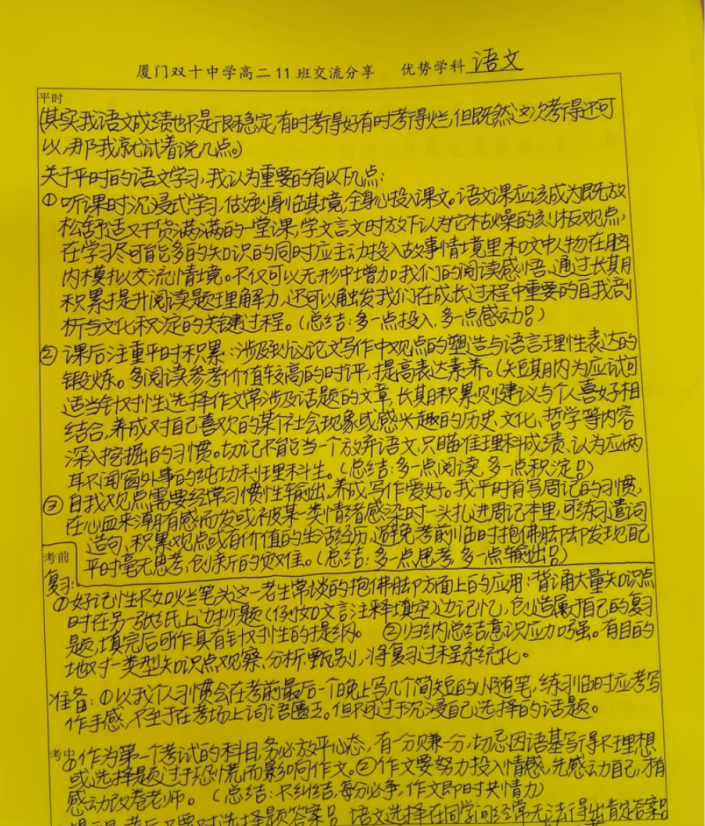 厦门双十中学高二11班交流分享 优势学科 语文
平时
(其实我语文成绩也不是很稳定,有时考得好有时考得烂,但既然这次考得还可
以,那我就试着说几点。)
关于平时的语文学习,我认为重要的有以下几点:
①听课时沉浸式学习,做到身临其境,全身心投入课文。语文课应该成为既放
松舒适又干货满满的一堂课,学文言文时放下认为它枯燥的刻板观点,
在学习尽可能多的知识的同时应主动投入故事情境里和文中人物在脑
内模拟交流情境。不仅可以无形中增加我们的阅读感悟,通过长期
积累提升阅读题理解力,还可以触发我们在成长过程中重要的自我剖
析与文化积淀的关键过程。(总结:多一点投入,多一点感动!)
②课后注重平时积累:涉及到议论文写作中观点的塑造与语言理性表达的
锻炼。多阅读参考价值较高的时评,提高表达素养。(短期内为应试可
适当针对性选择作文常涉及话题的文章,长期积累则建议与个人喜好相
结合,养成对自己喜欢的某个社会现象或感兴趣的历史、文化、哲学等内容
深入挖掘的习惯。切记不能当一个放弃语文,只瞄准理科成绩、认为应两
耳不闻窗外事的纯功利性理科生。(总结:多一点阅读,多一点积淀!)
③自我观点需要经常习惯性输出,养成写作爱好。我平时有写周记的习惯,
在心血来潮有感而发或被某一类情绪感染时一头扎进周记本里,可练习遣词
造句,积累观点或有价值的生活经历,避免考前临时抱佛脚却发现自己
平时毫无思考、创新的窘境。(总结:多一点思考,多一点输出!)
考前
复习:
①好记性不如烂笔头这一老生常谈的抱佛脚方面上的应用:背诵大量知识点
时在另一张纸上边抄题(例如文言注释填空)边记忆,创造属于自己的复习
题,填完后可作具有针对性的提纲。 ②归纳总结意识应加强。有目的
地对一类型知识点观察、分析、甄别,将复习过程系统化。
准备:①以我个人习惯会在考前最后一个晚上写几个简短的小随笔,练习临时应考写
作手感,不至于在考场上词语匮乏。但不过于沉浸自己选择的话题。
考中
①作为第一个考试的科目,务必放平心态,有一分赚一分,切忌因语基写得不理想
或选择题过于恐慌而影响作文。②作文要努力投入情感,先感动自己,才有
感动改卷老师。(总结:不纠结,每分必争,作文即时共情力)
语文选择在同学间经常无法得出肯定答案